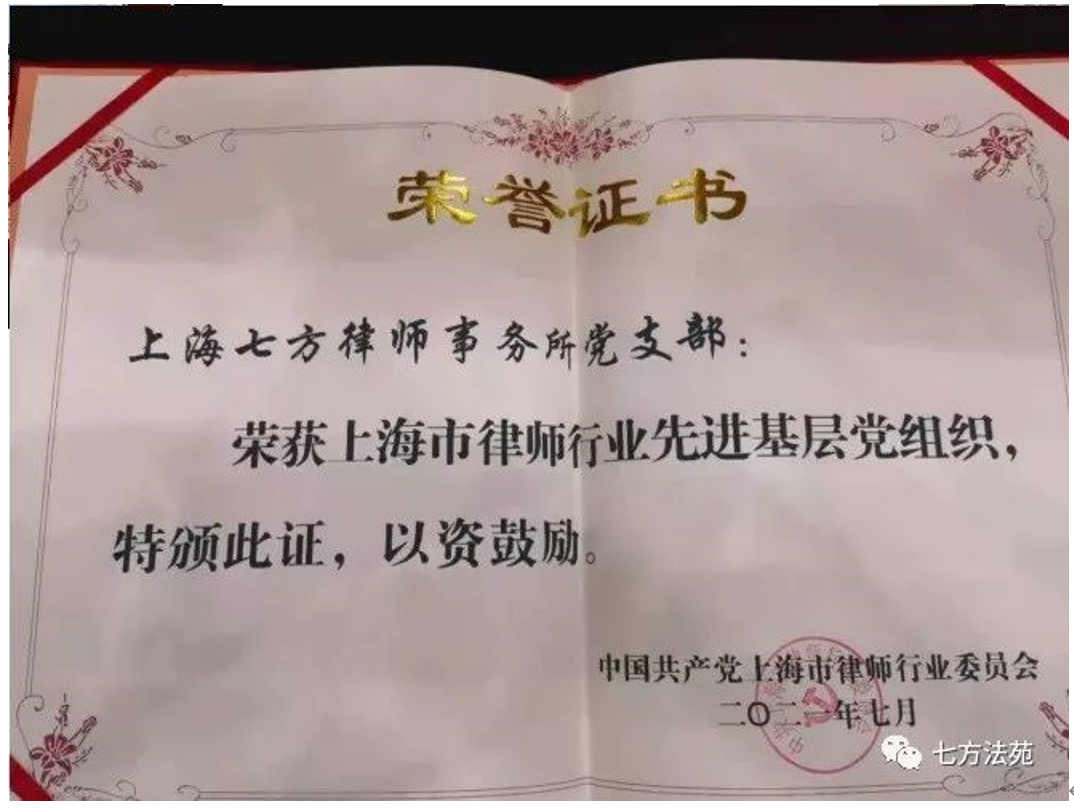 荣誉证书
上海七方律师事务所党支部：
荣获上海市律师行业先进基层党组织，
特颁此证，以资鼓励。
中国共产党上海市律师行业委员会
二〇二一年七月
七方法苑